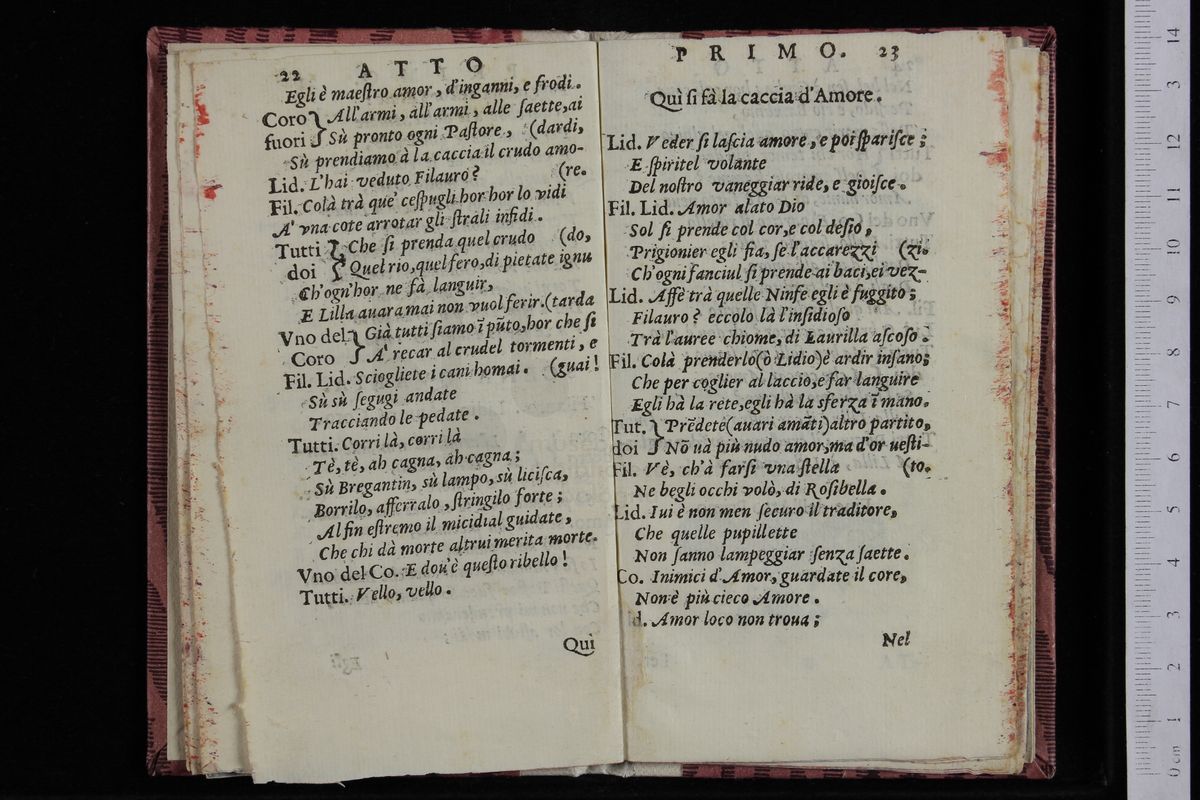 22 ATTO
Egli è maeſtro amor, d'inganni, e frodi.
Coro } All'armi, all'armi, alle ſaette, ai
fuori } Sù pronto ogni Paſtore, (dardi,
Sù prendiamo à la caccia il crudo amo-
Lid. L'hai veduto Filauro? (re.
Fil. Colà trà que' ceſpugli hor hor lo vidi
A' vna cote arrotar gli ſtrali infidi.
Tutti } Che ſi prenda quel crudo (do,
doi } Quel rio, quel fero, di pietate ignu
Ch'ogn'hor ne fà languir,
E Lilla auara mai non vuol ferir. (tarda
Vno del } Già tutti ſiamo ī pūto, hor che ſi
Coro } A' recar al crudel tormenti, e
Fil. Lid. Sciogliete i cani homai. (guai!
Sù sù ſegugi andate
Tracciando le pedate.
Tutti. Corri là, corri là
Tè, tè, ah cagna, ah cagna;
Sù Bregantin, sù lampo, sù liciſca,
Borrilo, afferralo, ſtringilo forte;
Al fin eſtremo il micidial guidate,
Che chi dà morte altrui merita morte.
Vno del Co. E dou'è queſto ribello!
Tutti. Vello, vello.
Quì
PRIMO. 23
Quì ſi fà la caccia d'Amore.
Lid. Veder ſi laſcia amore, e poi ſpariſce;
E ſpiritel volante
Del noſtro vaneggiar ride, e gioiſce.
Fil. Lid. Amor alato Dio
Sol ſi prende col cor, e col deſio,
Prigionier egli fia, ſe l'accarezzi (zi.
Ch'ogni fanciul ſi prende ai baci, ei vez-
Lid. Affè trà quelle Ninfe egli è fuggito;
Filauro? eccolo là l'inſidioſo
Trà l'auree chiome, di Laurilla aſcoſo.
Fil. Colà prenderlo (ò Lidio) è ardir inſano;
Che per coglier al laccio, e far languire
Egli hà la rete, egli hà la sferza ī mano.
Tut. } Prēdete (auari amāti) altro partito,
doi } Nō uà più nudo amor, ma d'or ueſti-
Fil. Vè, ch'à farſi vna ſtella (to.
Ne begli occhi volò, di Roſibella.
Lid. Iui è non men ſecuro il traditore,
Che quelle pupillette
Non ſanno lampeggiar ſenza ſaette.
Co. Inimici d'Amor, guardate il core,
Non è più cieco Amore.
id. Amor loco non troua;
Nel
0 cm 1 2 3 4 5 6 7 8 9 10 11 12 13 14